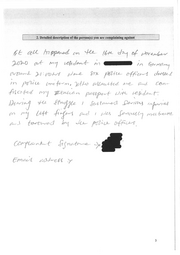 2. Detailed description of the person(s) you are complaining against
It all happened on the 16th day of November
2020 at my resident in in Germany
around 21:00hrs when two police officers dressed
in police uniform, illegally assaulted me and con
fiscated my German passport with resident.
During the struggle I sustained serious injuries
on my left fingers and I was seriously wounded
and tortured by the police officers.
Complainant Signature :-
Email address :-